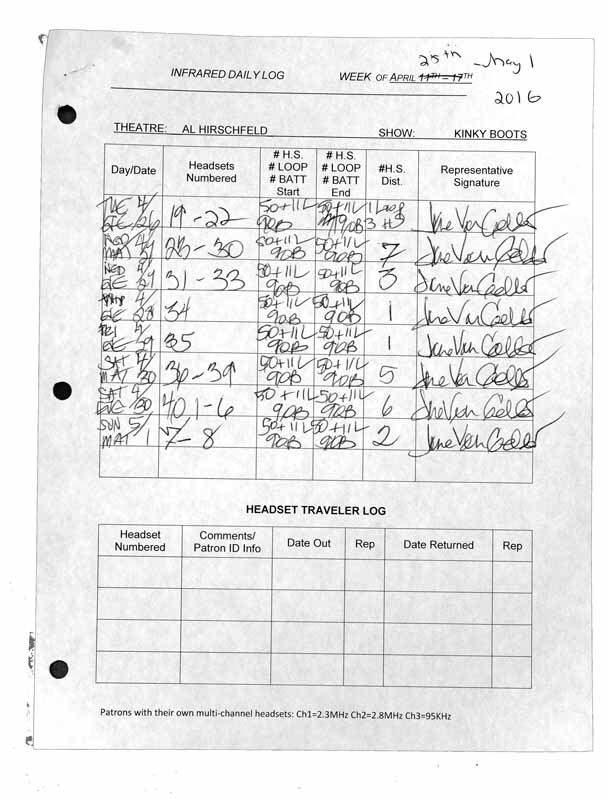 25th - May 1
INFRARED DAILY LOG WEEK OF APRIL 11TH – 17TH
2016
THEATRE: AL HIRSCHFELD SHOW: KINKY BOOTS
Day/Date Headsets Numbered # H.S. # LOOP # BATT Start # H.S. # LOOP # BATT End #H.S. Dist. Representative Signature
TUE 4/ EVE/26 19-22 50+11L 90B 50+11L 90B 3 Jane Van Gelder
WED 4/ MAT 27 23-30 50+11L 90B 50+11L 90B 7 Jane Van Gelder
WED 4/ EVE 27 31-33 50+11L 90B 50+11L 90B 3 Jane Van Gelder
4/ EVE 28 34 50+11L 90B 50+11L 90B 1 Jane Van Gelder
FRI 4/ EVE 29 35 50+11L 90B 50+11L 90B 1 Jane Van Gelder
SAT 4/ MAT 30 36-39 50+11L 90B 50+11L 90B 5 Jane Van Gelder
SAT 4/ EVE/30 40 1-6 50+11L 90B 50+11L 90B 6 Jane Van Gelder
SUN 5/ MAT 1 7-8 50+11L 90B 50+11L 90B 2 Jane Van Gelder
HEADSET TRAVELER LOG
Headset Numbered Comments/ Patron ID Info Date Out Rep Date Returned Rep
Patrons with their own multi-channel headsets: Ch1=2.3MHz Ch2=2.8MHz Ch3=95KHz